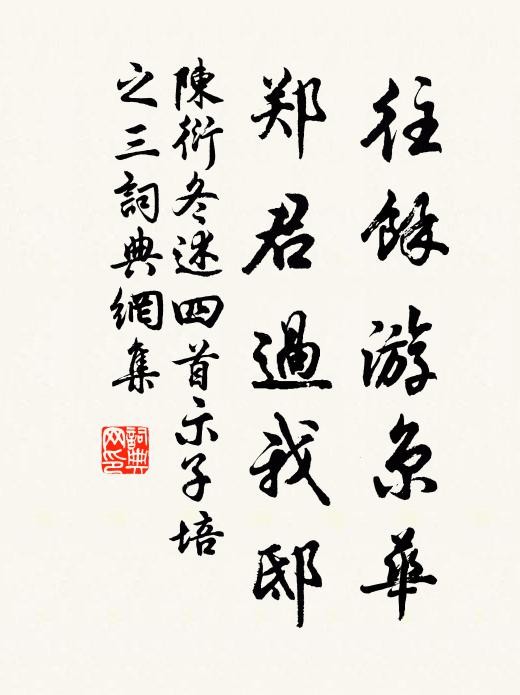 往馀游京華
郑君過我邸
陳衍冬述四首示子培
之三詞典網集
詞典网印